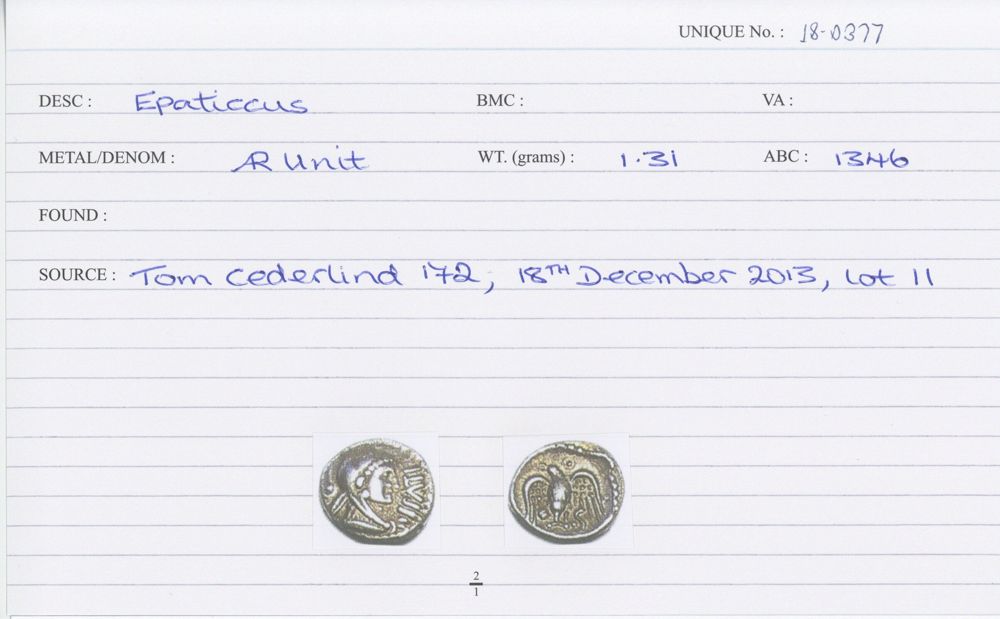 UNIQUE No. : 18-0377
DESC : Epaticcus BMC : VA :
METAL/DENOM : AR Unit WT. (grams) : 1.31 ABC : 1346
FOUND :
SOURCE : Tom Cederlind 172, 18TH December 2013, Lot 11
2
1